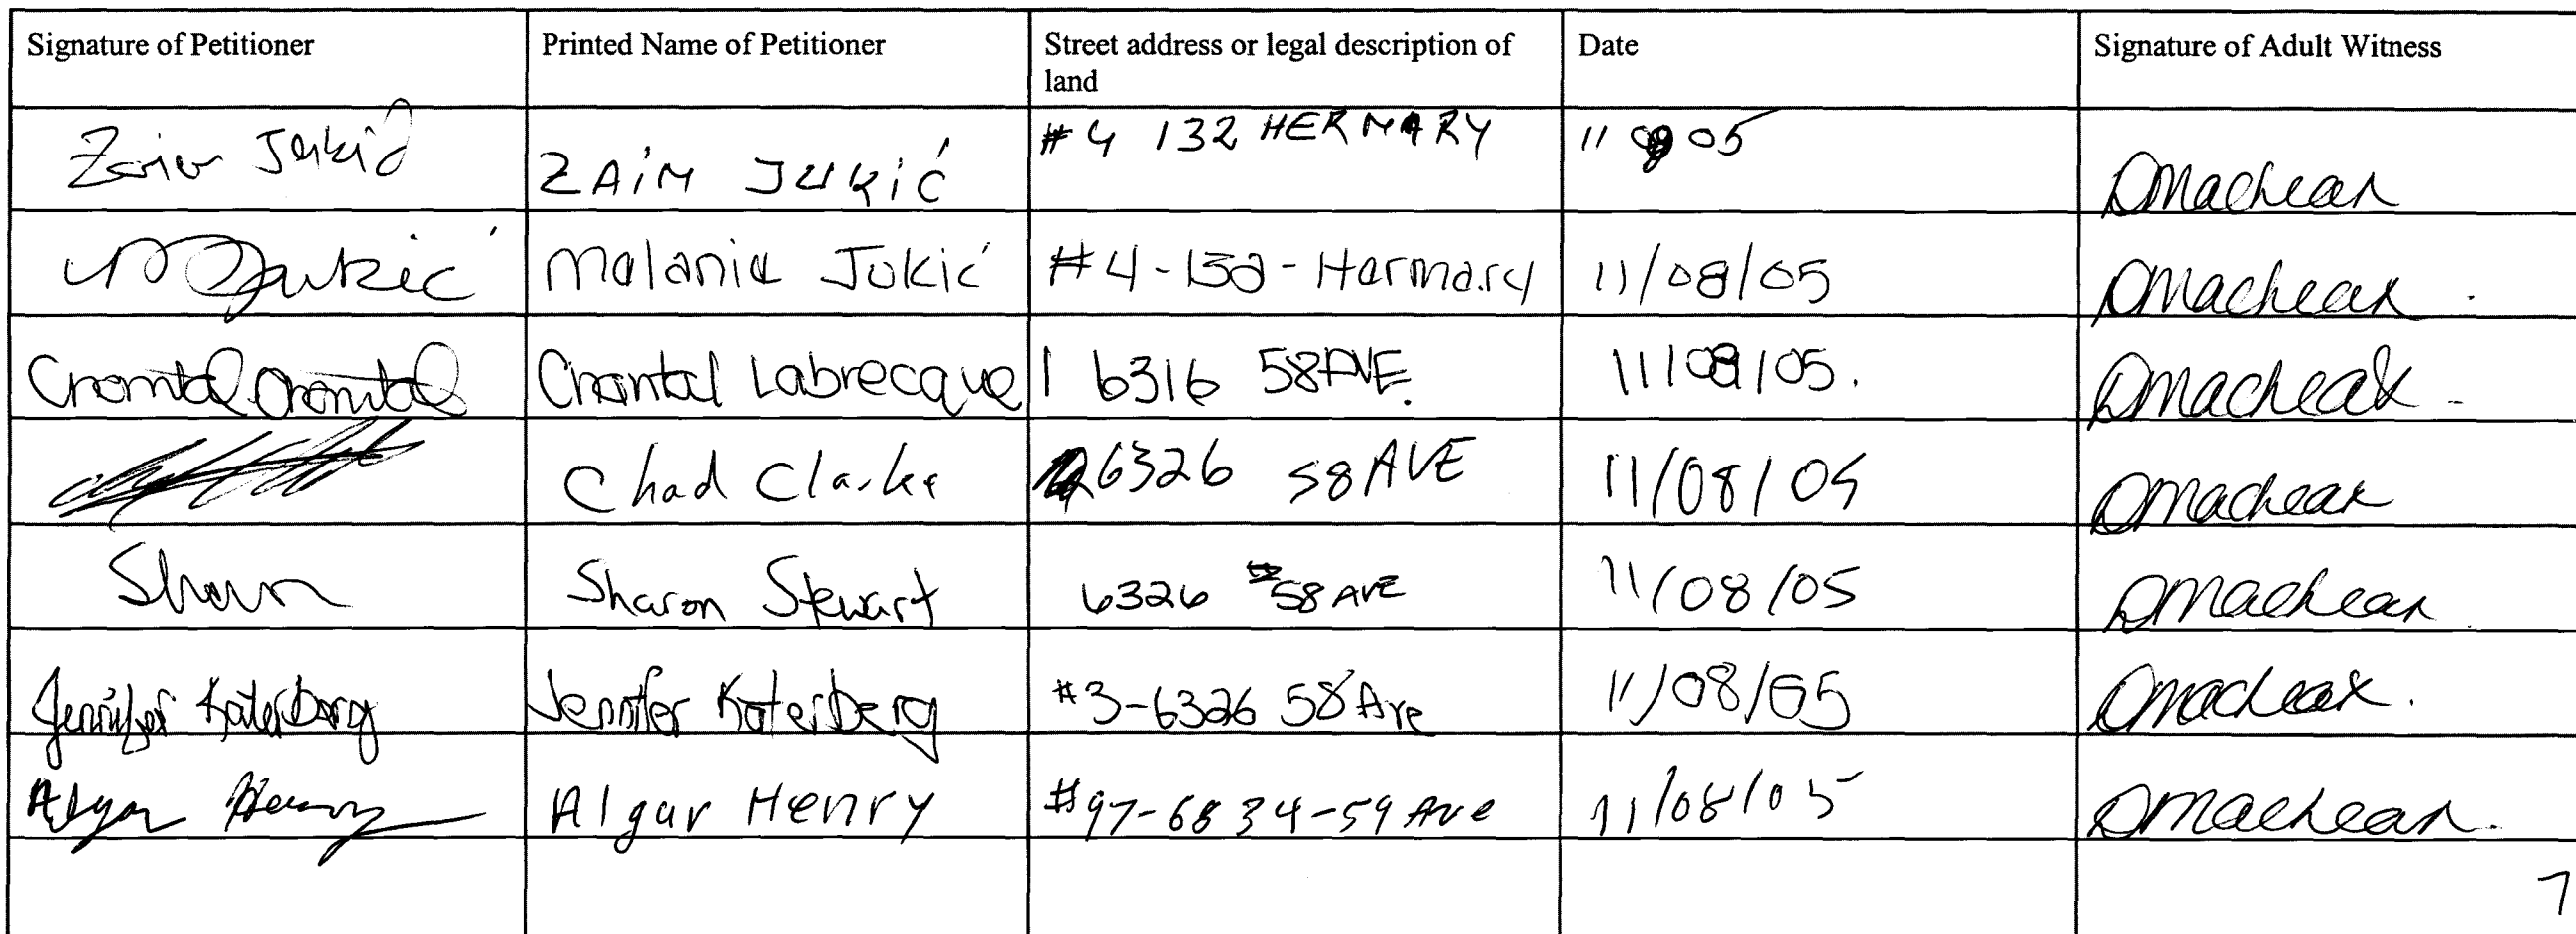 Signature of Petitioner Printed Name of Petitioner Street address or legal description of land Date Signature of Adult Witness
Zaim Jukić ZAiM JUKiĆ #4 132 HERMARY 11 8 05 DMachean
M Jukić Malania Jukić #4-132-Hermary 11/08/05 DMachean
Chantal Chantal Chantal Labrecque 1 6316 58 AVE. 11/08/05. DMachean
Chad Clarke 6326 58 AVE 11/08/05 DMachean
Sharon Sharon Stewart 6326 58 AVE 11/08/05 DMachean
Jennifer Katerberg Jennifer Katerberg #3-6326 58 Ave 11/08/05 DMachean.
Algar Henry Algar Henry #97-6834-59 Ave 11/08/05 DMachean.
7